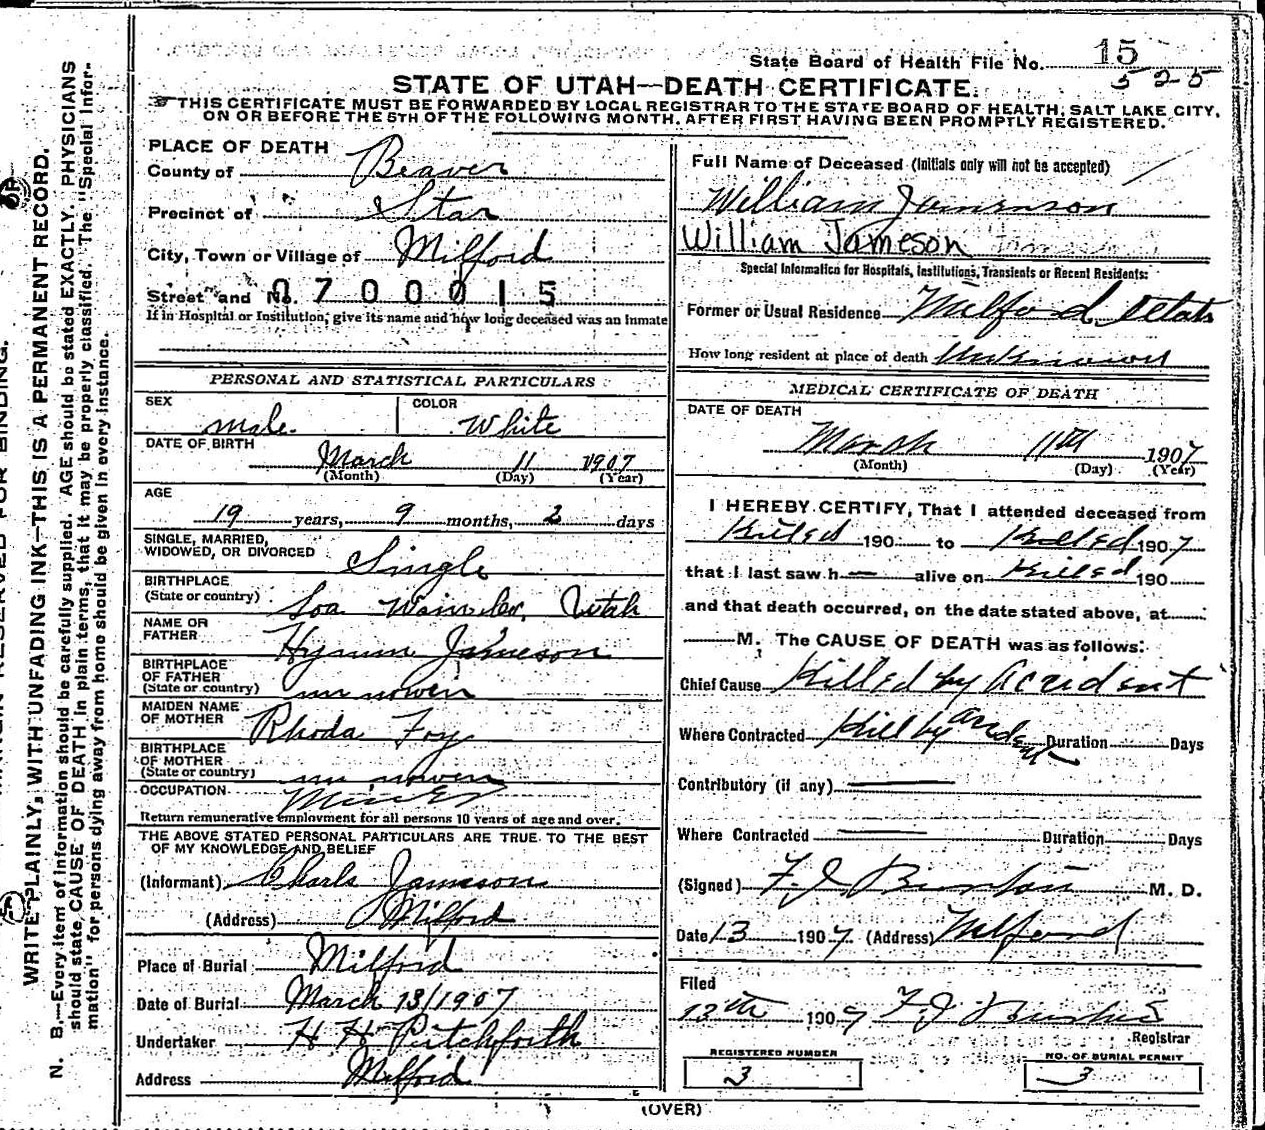 State Board of Health File No. 15
525
STATE OF UTAH—DEATH CERTIFICATE.
THIS CERTIFICATE MUST BE FORWARDED BY LOCAL REGISTRAR TO THE STATE BOARD OF HEALTH, SALT LAKE CITY,
ON OR BEFORE THE 5TH OF THE FOLLOWING MONTH, AFTER FIRST HAVING BEEN PROMPTLY REGISTERED.
PLACE OF DEATH
County of Beaver
Precinct of Star
City, Town or Village of Milford
Street and No. 0700015
If in Hospital or Institution, give its name and how long deceased was an Inmate
PERSONAL AND STATISTICAL PARTICULARS
SEX male COLOR White
DATE OF BIRTH March 11 1907
(Month) (Day) (Year)
AGE
19 years, 9 months, 2 days
SINGLE, MARRIED,
WIDOWED, OR DIVORCED Single
BIRTHPLACE
(State or country) Loa Utah
NAME OR
FATHER Hyrum Jameson
BIRTHPLACE
OF FATHER
(State or country) un nowen
MAIDEN NAME
OF MOTHER Rhoda Foy
BIRTHPLACE
OF MOTHER
(State or country) un nowen
OCCUPATION Miner
Return remunerative employment for all persons 10 years of age and over.
THE ABOVE STATED PERSONAL PARTICULARS ARE TRUE TO THE BEST
OF MY KNOWLEDGE AND BELIEF
(Informant) Charls Jameson
(Address) Milford
Place of Burial Milford
Date of Burial March 13/1907
Undertaker H H Pitchforth
Address Milford
Full Name of Deceased (Initials only will not be accepted)
William Jamenson
William Jameson
Special Information for Hospitals, Institutions, Transients or Recent Residents:
Former or Usual Residence Milford Utah
How long resident at place of death Unknown
MEDICAL CERTIFICATE OF DEATH
DATE OF DEATH
March 11th 1907
(Month) (Day) (Year)
I HEREBY CERTIFY, That I attended deceased from
Killed 190 to Killed 1907
that I last saw h— alive on Killed 190
and that death occurred, on the date stated above, at
M. The CAUSE OF DEATH was as follows:
Chief Cause Killed by accident
Where Contracted Kill by Duration Days
Contributory (if any)
Where Contracted Duration Days
(Signed) F. J. Burton M. D.
Date 13 1907 (Address) Milford
Filed
13th 1907 F. J.
Registrar
REGISTERED NUMBER
3
NO. OF BURIAL PERMIT
3
(OVER)
WRITE PLAINLY, WITH UNFADING INK—THIS IS A PERMANENT RECORD.
N. B.—Every item of information should be carefully supplied. AGE should be stated EXACTLY. PHYSICIANS
should state CAUSE OF DEATH in plain terms, that it may be properly classified. The "Special Infor-
mation" for persons dying away from home should be given in every instance.